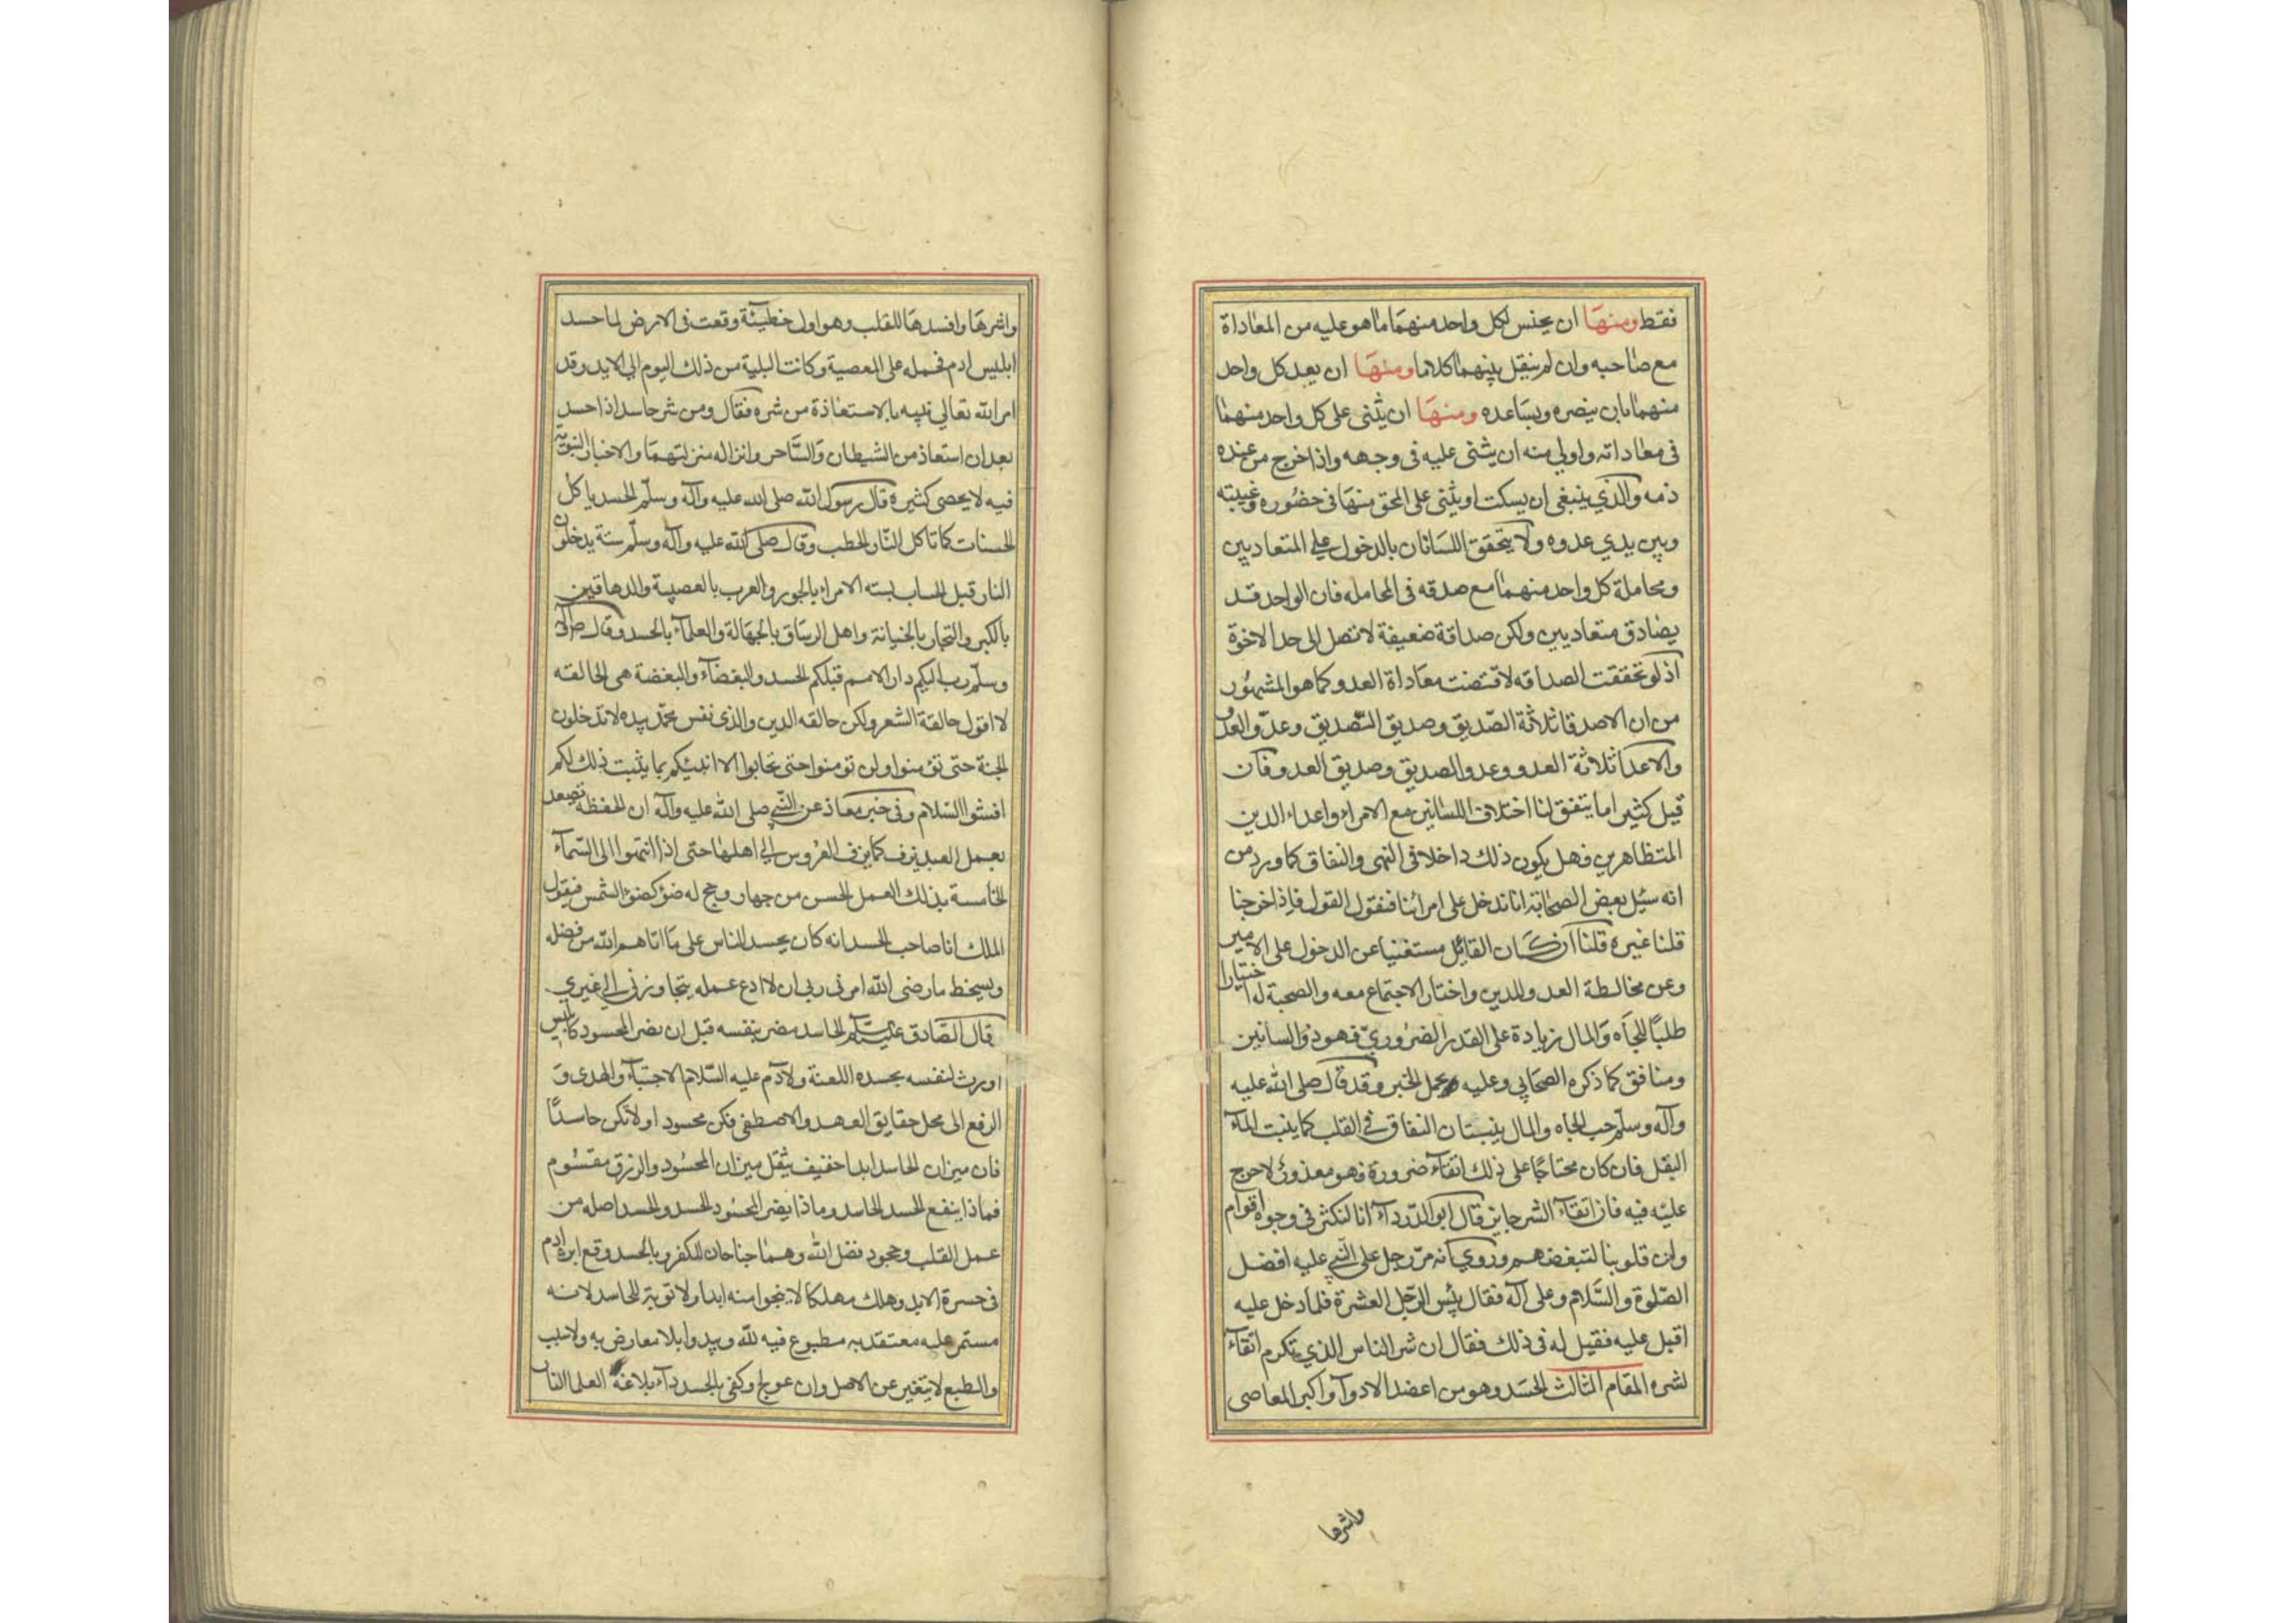 فقط ومنها ان يحسن لكل واحد منهما ما هو عليه من المعاداة
مع صاحبه وان لم ينقل بينهما كلاما ومنها ان يعد كل واحد
منهما بان ينصره ويساعده ومنها ان يثنى على كل واحد منهما
فى معاداته واولي منه ان يثنى عليه فى وجهه واذا خرج من عنده
ذمه والذي ينبغى ان يسكت او يثنى على المحق منها فى حضوره وغيبته
وبين يدي عدوه ولا يتحقق اللسانان بالدخول على المتعاديين
ومجاملة كل واحد منهما مع صدقه فى المجامله فان الواحد قد
يصادق متعاديين ولكن صداقة ضعيفة لا تصل الى حد الاخوة
اذ لو تحققت الصداقه لاقتضت معاداة العدو كما هو المشهور
من ان الاصدقا ثلاثة الصديق وصديق الصديق وعدو العدو
والاعدا ثلاثة العدو وعدو الصديق وصديق العدو فان
قيل كثيرا ما يتفق لنا اختلاف اللسانين مع الامراء واعداء الدين
المتظاهرين فهل يكون ذلك داخلا فى النهى والنفاق كما ورد من
انه سئل بعض الصحابة انا ندخل على امرائنا فنقول القول فاذا خرجنا
قلنا غيره قلنا ان كان القائل مستغنيا عن الدخول على الامير
وعن مخالطة العدو للدين واختار الاجتماع معه والصحبة له اختيارا
طلبًا للجاه والمال زيادة على القدر الضروري فهو ذو السانين
ومنافق كما ذكره الصحابي وعليه يحمل الخبر وقد قال صلى الله عليه
وآله وسلم حب الجاه والمال ينبتان النفاق في القلب كما ينبت الماء
البقل فان كان محتاجا على ذلك اتقاء ضرورة فهو معذور لا حرج
عليه فيه فان اتقاء الشر جايز قال ابو الدرداء انا لنكثر فى وجوه اقوام
وان قلوبنا لتبغضهم وروي انه مر رجل على النبي عليه افضل
الصلوة والسلام وعلى آله فقال بئس الرجل العشرة فلما دخل عليه
اقبل عليه فقيل له فى ذلك فقال ان شر الناس الذي يكرم اتقاء
لشره المقام الثالث الحسد وهو من اعضد الادواء واكبر المعاصى
واشرها
واشرها وافسدها للقلب وهو اول خطيئة وقعت فى الارض لما حسد
ابليس ادم فحمله على المعصية وكانت البلية من ذلك اليوم الى الابد وقد
امر الله تعالي نبيه بالاستعاذة من شره فقال ومن شر حاسد اذا حسد
بعد ان استعاذ من الشيطان والساحر وانزاله منزلتهما والاخبار النبوية
فيه لا يحصى كثيره قال رسول الله صلى الله عليه وآله وسلم الحسد ياكل
الحسنات كما تاكل النار الحطب وقال صلى الله عليه وآله وسلم ستة يدخلون
النار قبل الحساب بسته الامراء بالجور والعرب بالعصبية والدهاقين
بالكبر والتجار بالخيانة واهل الرساق بالجهالة والعلماء بالحسد وقال
وسلم دب اليكم دار الامم قبلكم الحسد والبغضاء والبغضة هى الحالقه
لا اقول حالقة الشعر ولكن حالقه الدين والذى نفس محمد بيده لا تدخلون
الجنة حتى تؤمنوا ولن تومنوا حتى تحابوا الا انبئكم بما يثبت ذلك لكم
افشوا السلام وفى خبر معاذ عن النبي صلى الله عليه وآله ان الحفظة تصعد
بعمل العبد يزف كما يزف العروس الى اهلها حتى اذا انتهوا الى السماء
الخامسة بذلك العمل الحسن من جهاد وحج له ضؤ كضؤ الشمس فيقول
الملك انا صاحب الحسد انه كان يحسد الناس على ما اتاهم الله من فضله
ويسخط ما رضى الله امرنى ربى ان لا ادع عمله يتجاوزنى الى غيري
قال الصادق عليه السلام الحاسد مضر بنفسه قبل ان يضر المحسود كابليس
اورث لنفسه بحسده اللعنة ولادم عليه السلام الاجتباء والهدى و
الرفع الى محل حقايق العهد والاصطفى فكن محسودا ولا تكن حاسدًا
فان ميزان الحاسد ابدا خفيف يثقل ميزان المحسود والرزق مقسوم
فماذا ينفع الحسد الحاسد وماذا يضر المحسود الحسد والحسد اصله من
عمل القلب وجحود فضل الله وهما جناحان للكفر وبالحسد وقع ابن ادم
فى حسرة الابد وهلك مهلكا لا ينجوا منه ابدا ولا توبة للحاسد لانه
مستمر عليه معتقد به مطبوع فيه يبدوا بلا معارض به ولا سبب
والطبع لا يتغير عن الاصل وان عولج وكفى بالحسد داء بلاغة العلما النار